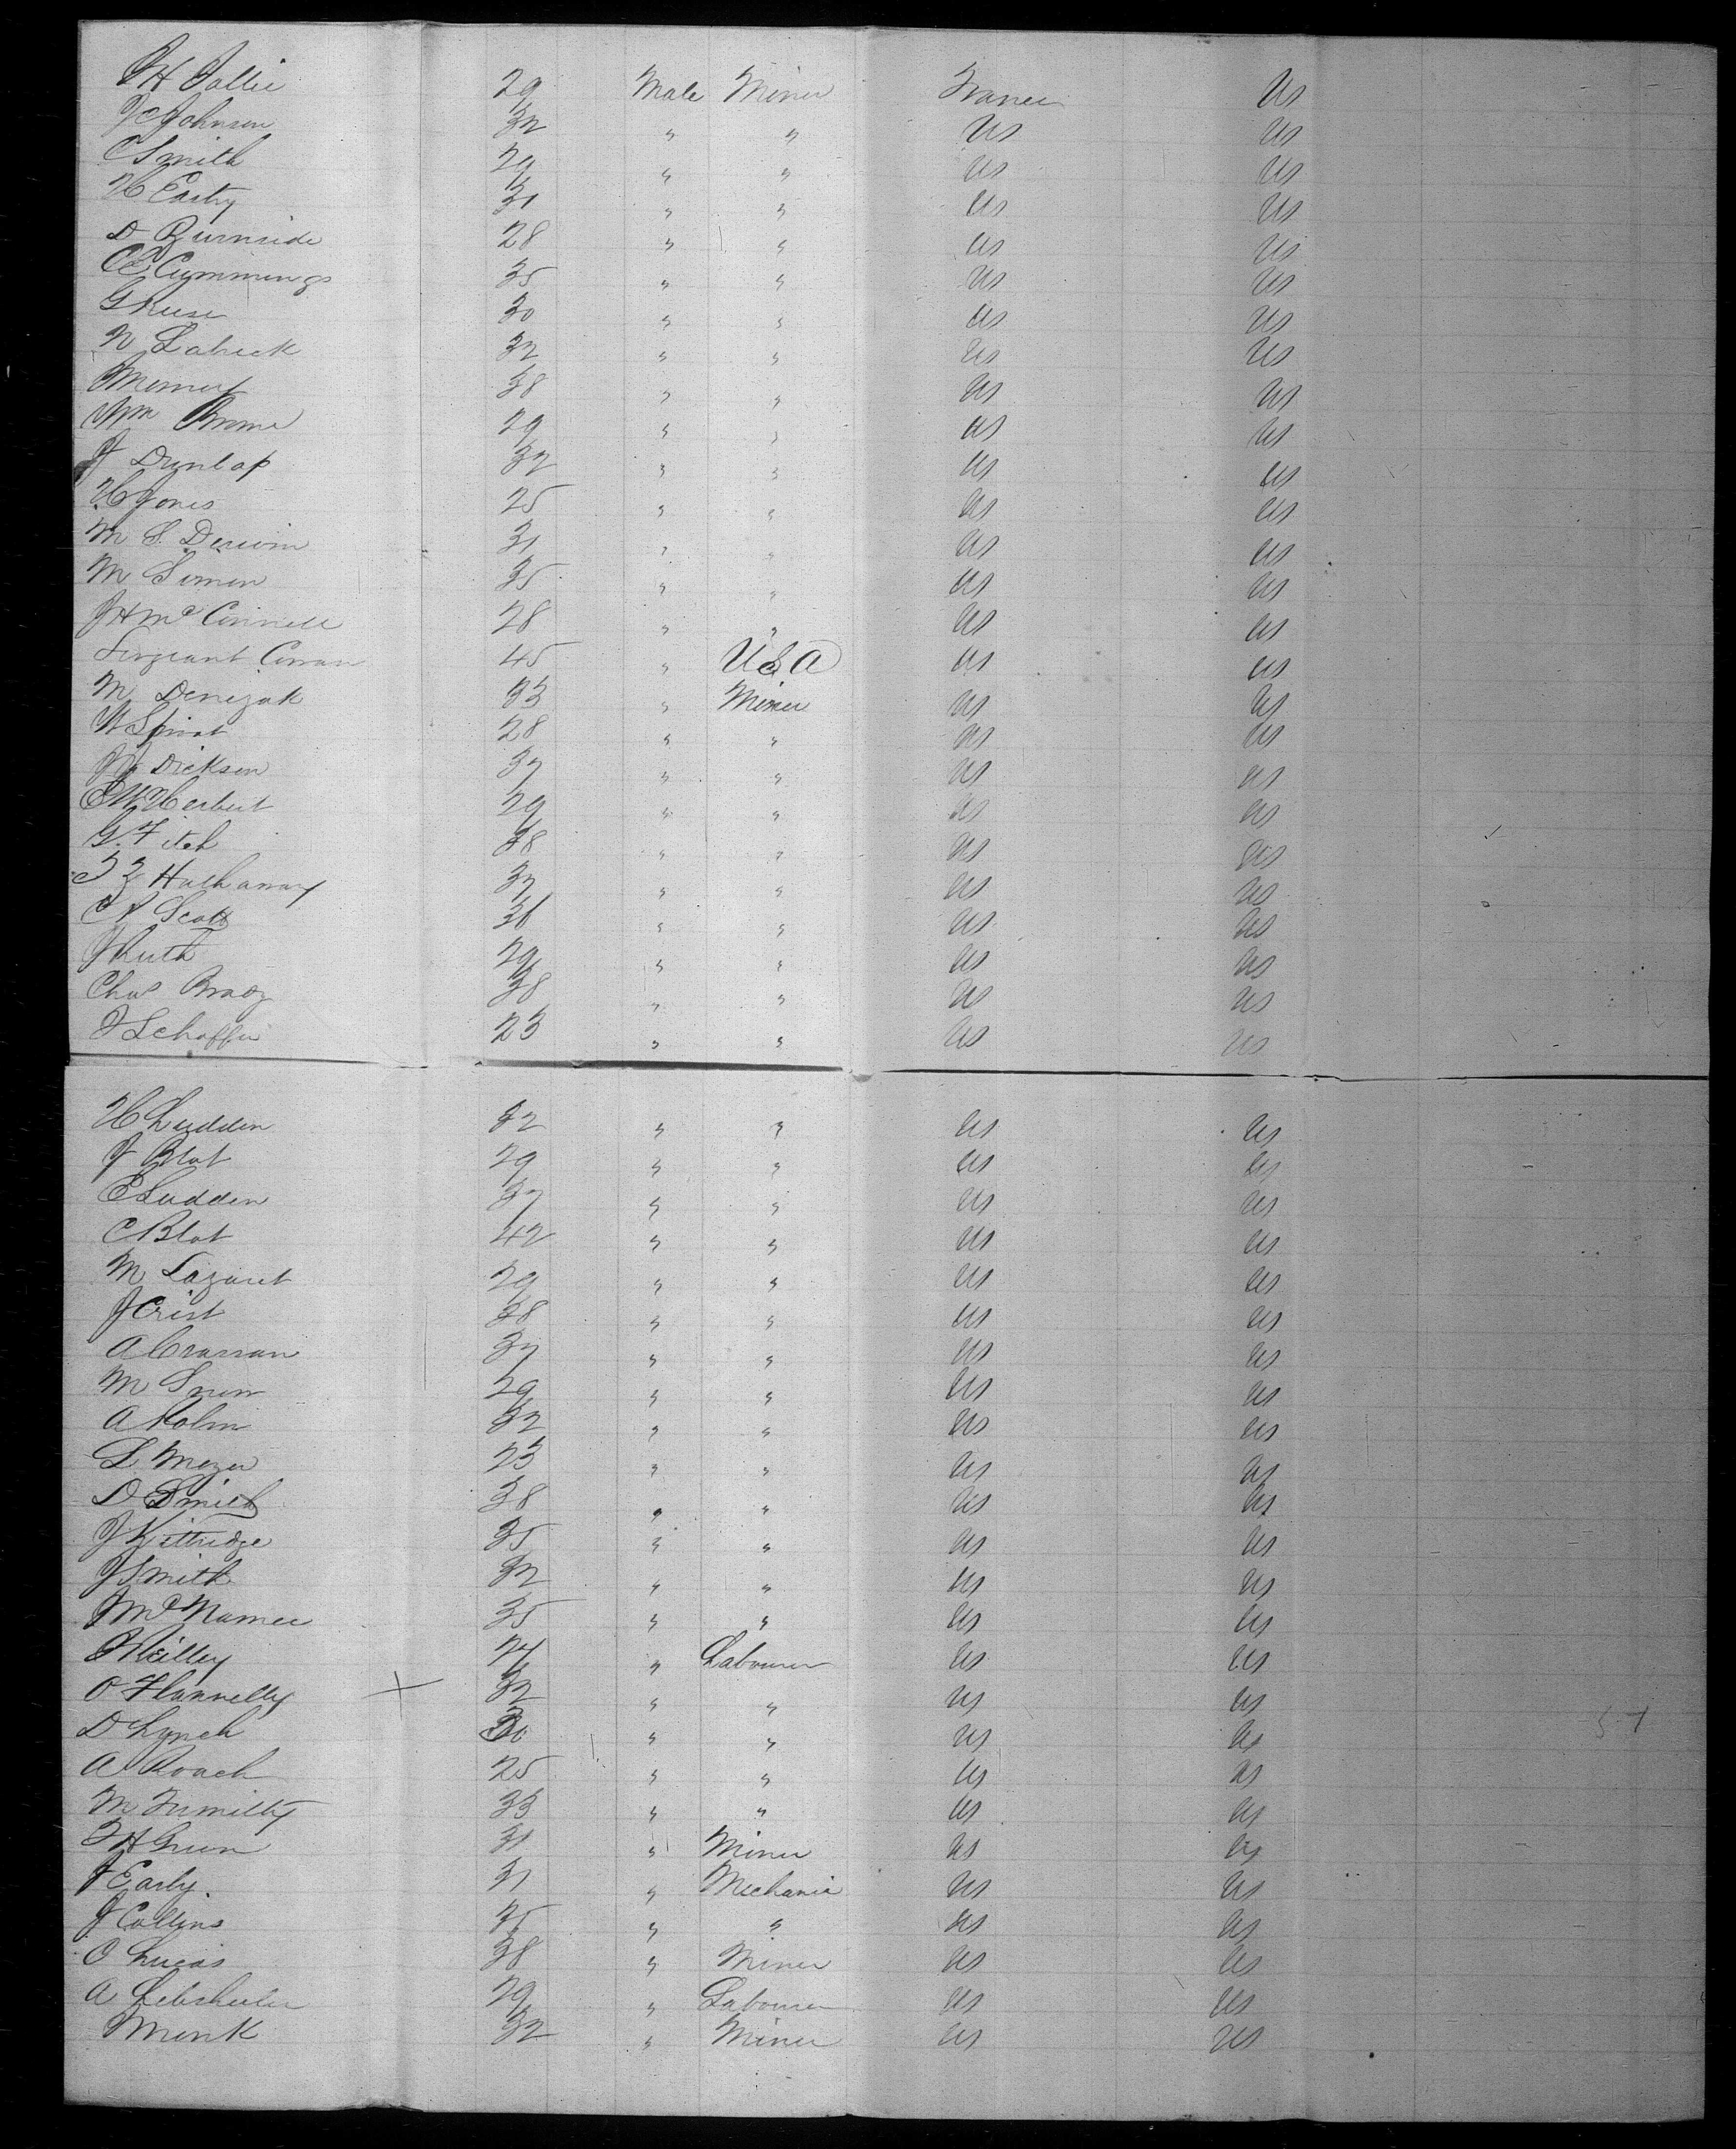 29 Male Miner France US
J C Johnson 32 " " US US
C Smith 29 " " US US
H Easty 31 " " US US
D Burnside 28 " " US US
Cummings 35 " " US US
G Kuse 30 " " US US
N Labick 32 " " US US
38 " " US US
Wm 29 " " US US
J Dunlap 32 " " US US
H Jones 25 " " US US
M S 31 " " US US
M Simon 35 " " US US
J H McConnell 28 " " US US
Sergeant Conran 45 " USA US US
M Denizak 33 " Miner US US
W 28 " " US US
Dickson 37 " " US US
E W Herbert 29 " " US US
G. Fitch 38 " " US US
Hathaway 37 " " US US
Scott 36 " " US US
J Ruth 29 " " US US
Chas Brady 38 " " US US
J Schaffer 23 " " US US
H Ludden 32 " " US US
J Blot 29 " " US US
E Ludden 37 " " US US
C Blot 42 " " US US
M Lazaret 29 " " US US
J Crist 38 " " US US
A 37 " " US US
M Snow 29 " " US US
A 32 " " US US
L Mezer 23 " " US US
D Smith 38 " " US US
J Kittridge 35 " " US US
J Smith 32 " " US US
J McNamee 35 " " US US
Labourer US US
O Flannelly 32 " " US US
D Lynch 30 " " US US
A Roach 25 " " US US
M 33 " " US US
T H Green 31 " Miner US US
J Early. 31 " Mechanic US US
J Collins " " US US
O Lucas 38 " Miner US US
A 29 " Labourer US US
Monk 32 " Miner US US